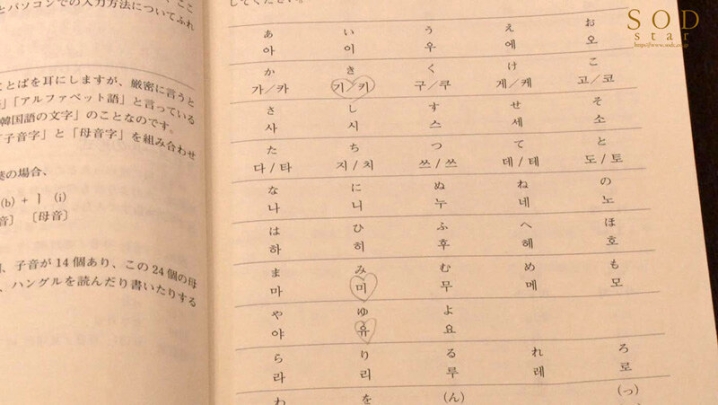 とパソコンでの入力方法についてふれ
ことばを耳にしますが、厳密に言うと
「アルファベット語」と言っている
韓国語の文字」のことなのです。
「子音字」と「母音字」を組み合わせ
の場合、
(b) + ㅣ (i)
音〕 〔母音〕
、子音が14個あり、この24個の母
、ハングルを読んだり書いたりする
してください。
あ い う え お
아 이 우 에 오
か き く け こ
가/카 기/키 구/쿠 게/케 고/코
さ し す せ そ
사 시 스 세 소
た ち つ て と
다/타 지/치 쓰/쓰 데/테 도/토
な に ぬ ね の
나 니 누 네 노
は ひ ふ へ ほ
하 히 후 헤 호
ま み む め も
마 미 무 메 모
や ゆ よ
야 유 요
ら り る れ ろ
라 리 루 레 로
わ を (ん) (っ)
SOD
star